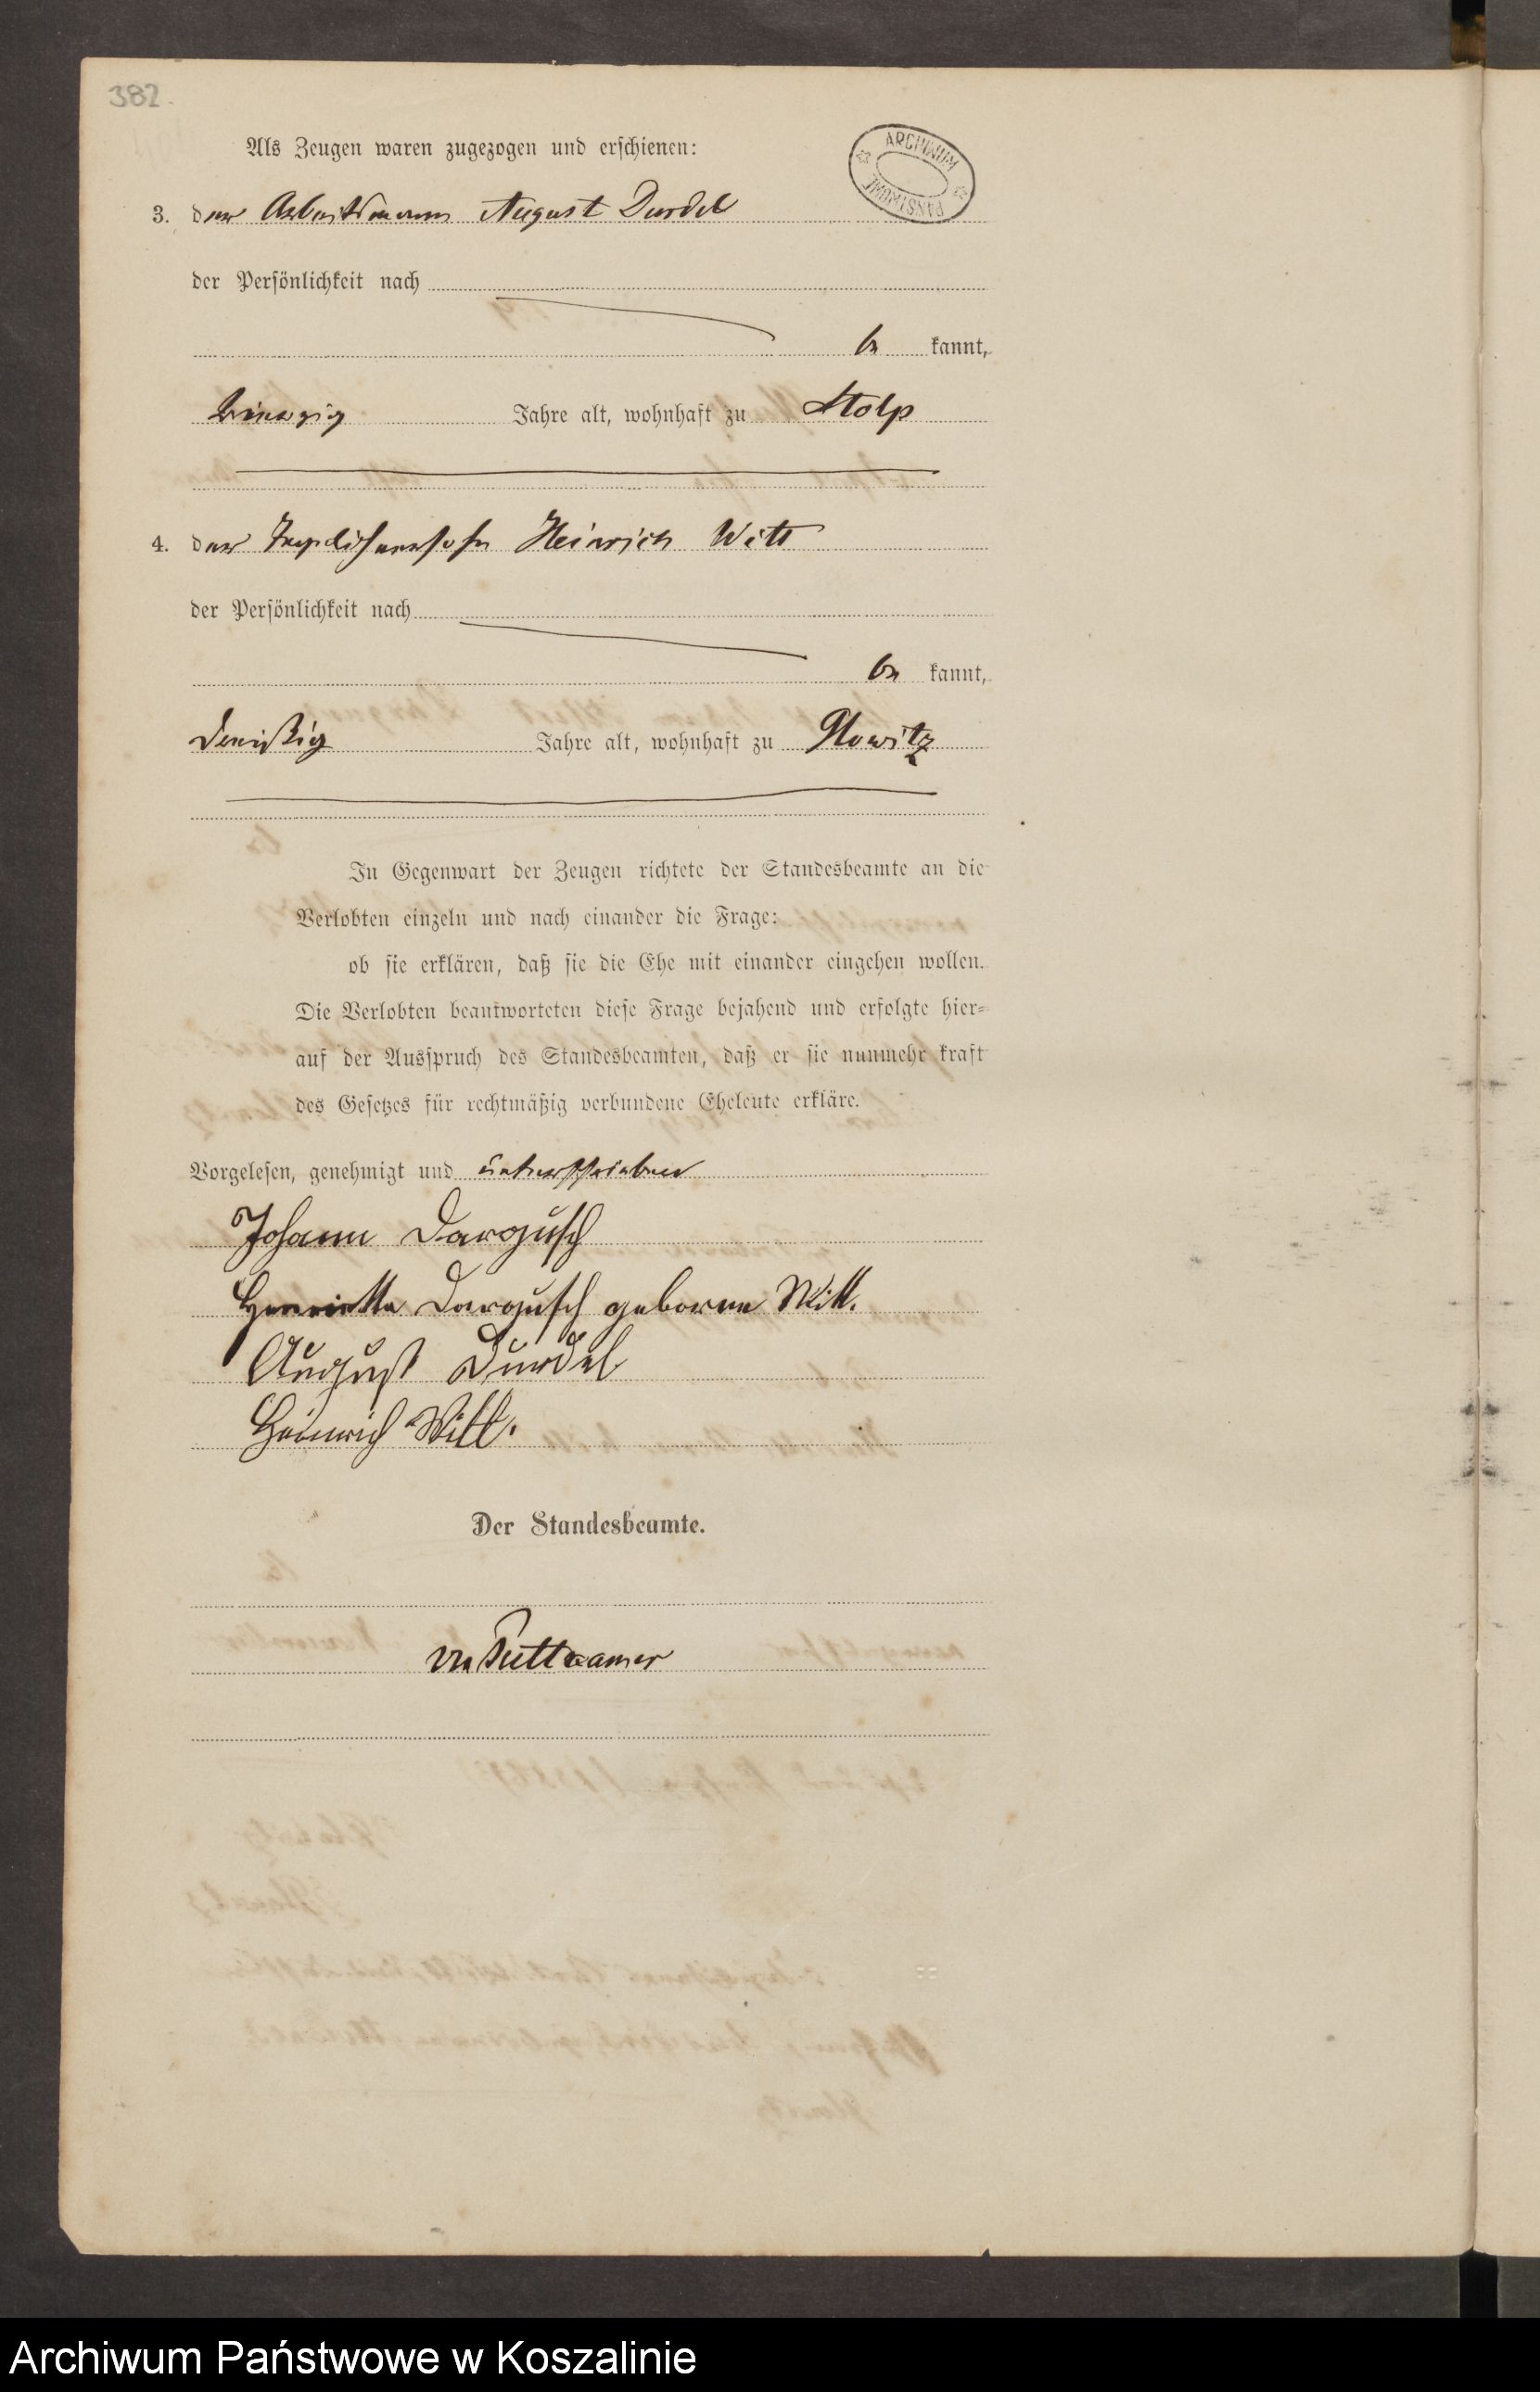 382.
Als Zeugen waren zugezogen und erschienen:
ARCHIWUM PAŃSTWOWE
3. der Arbeitsmann August Durdel
der Persönlichkeit nach
be kannt,
vierzig Jahre alt, wohnhaft zu Stolp
4. der Heinrich Witt
der Persönlichkeit nach
be kannt,
dreißig Jahre alt, wohnhaft zu Glowitz
In Gegenwart der Zeugen richtete der Standesbeamte an die
Verlobten einzeln und nach einander die Frage:
ob sie erklären, daß sie die Ehe mit einander eingehen wollen.
Die Verlobten beantworteten diese Frage bejahend und erfolgte hier-
auf der Ausspruch des Standesbeamten, daß er sie nunmehr kraft
des Gesetzes für rechtmäßig verbundene Eheleute erkläre.
Vorgelesen, genehmigt und unterschrieben
Johann Dargusch
Henriette Dargusch geborne Witt.
August Durdel
Heinrich Witt.
Der Standesbeamte.
von Puttkamer
Archiwum Państwowe w Koszalinie